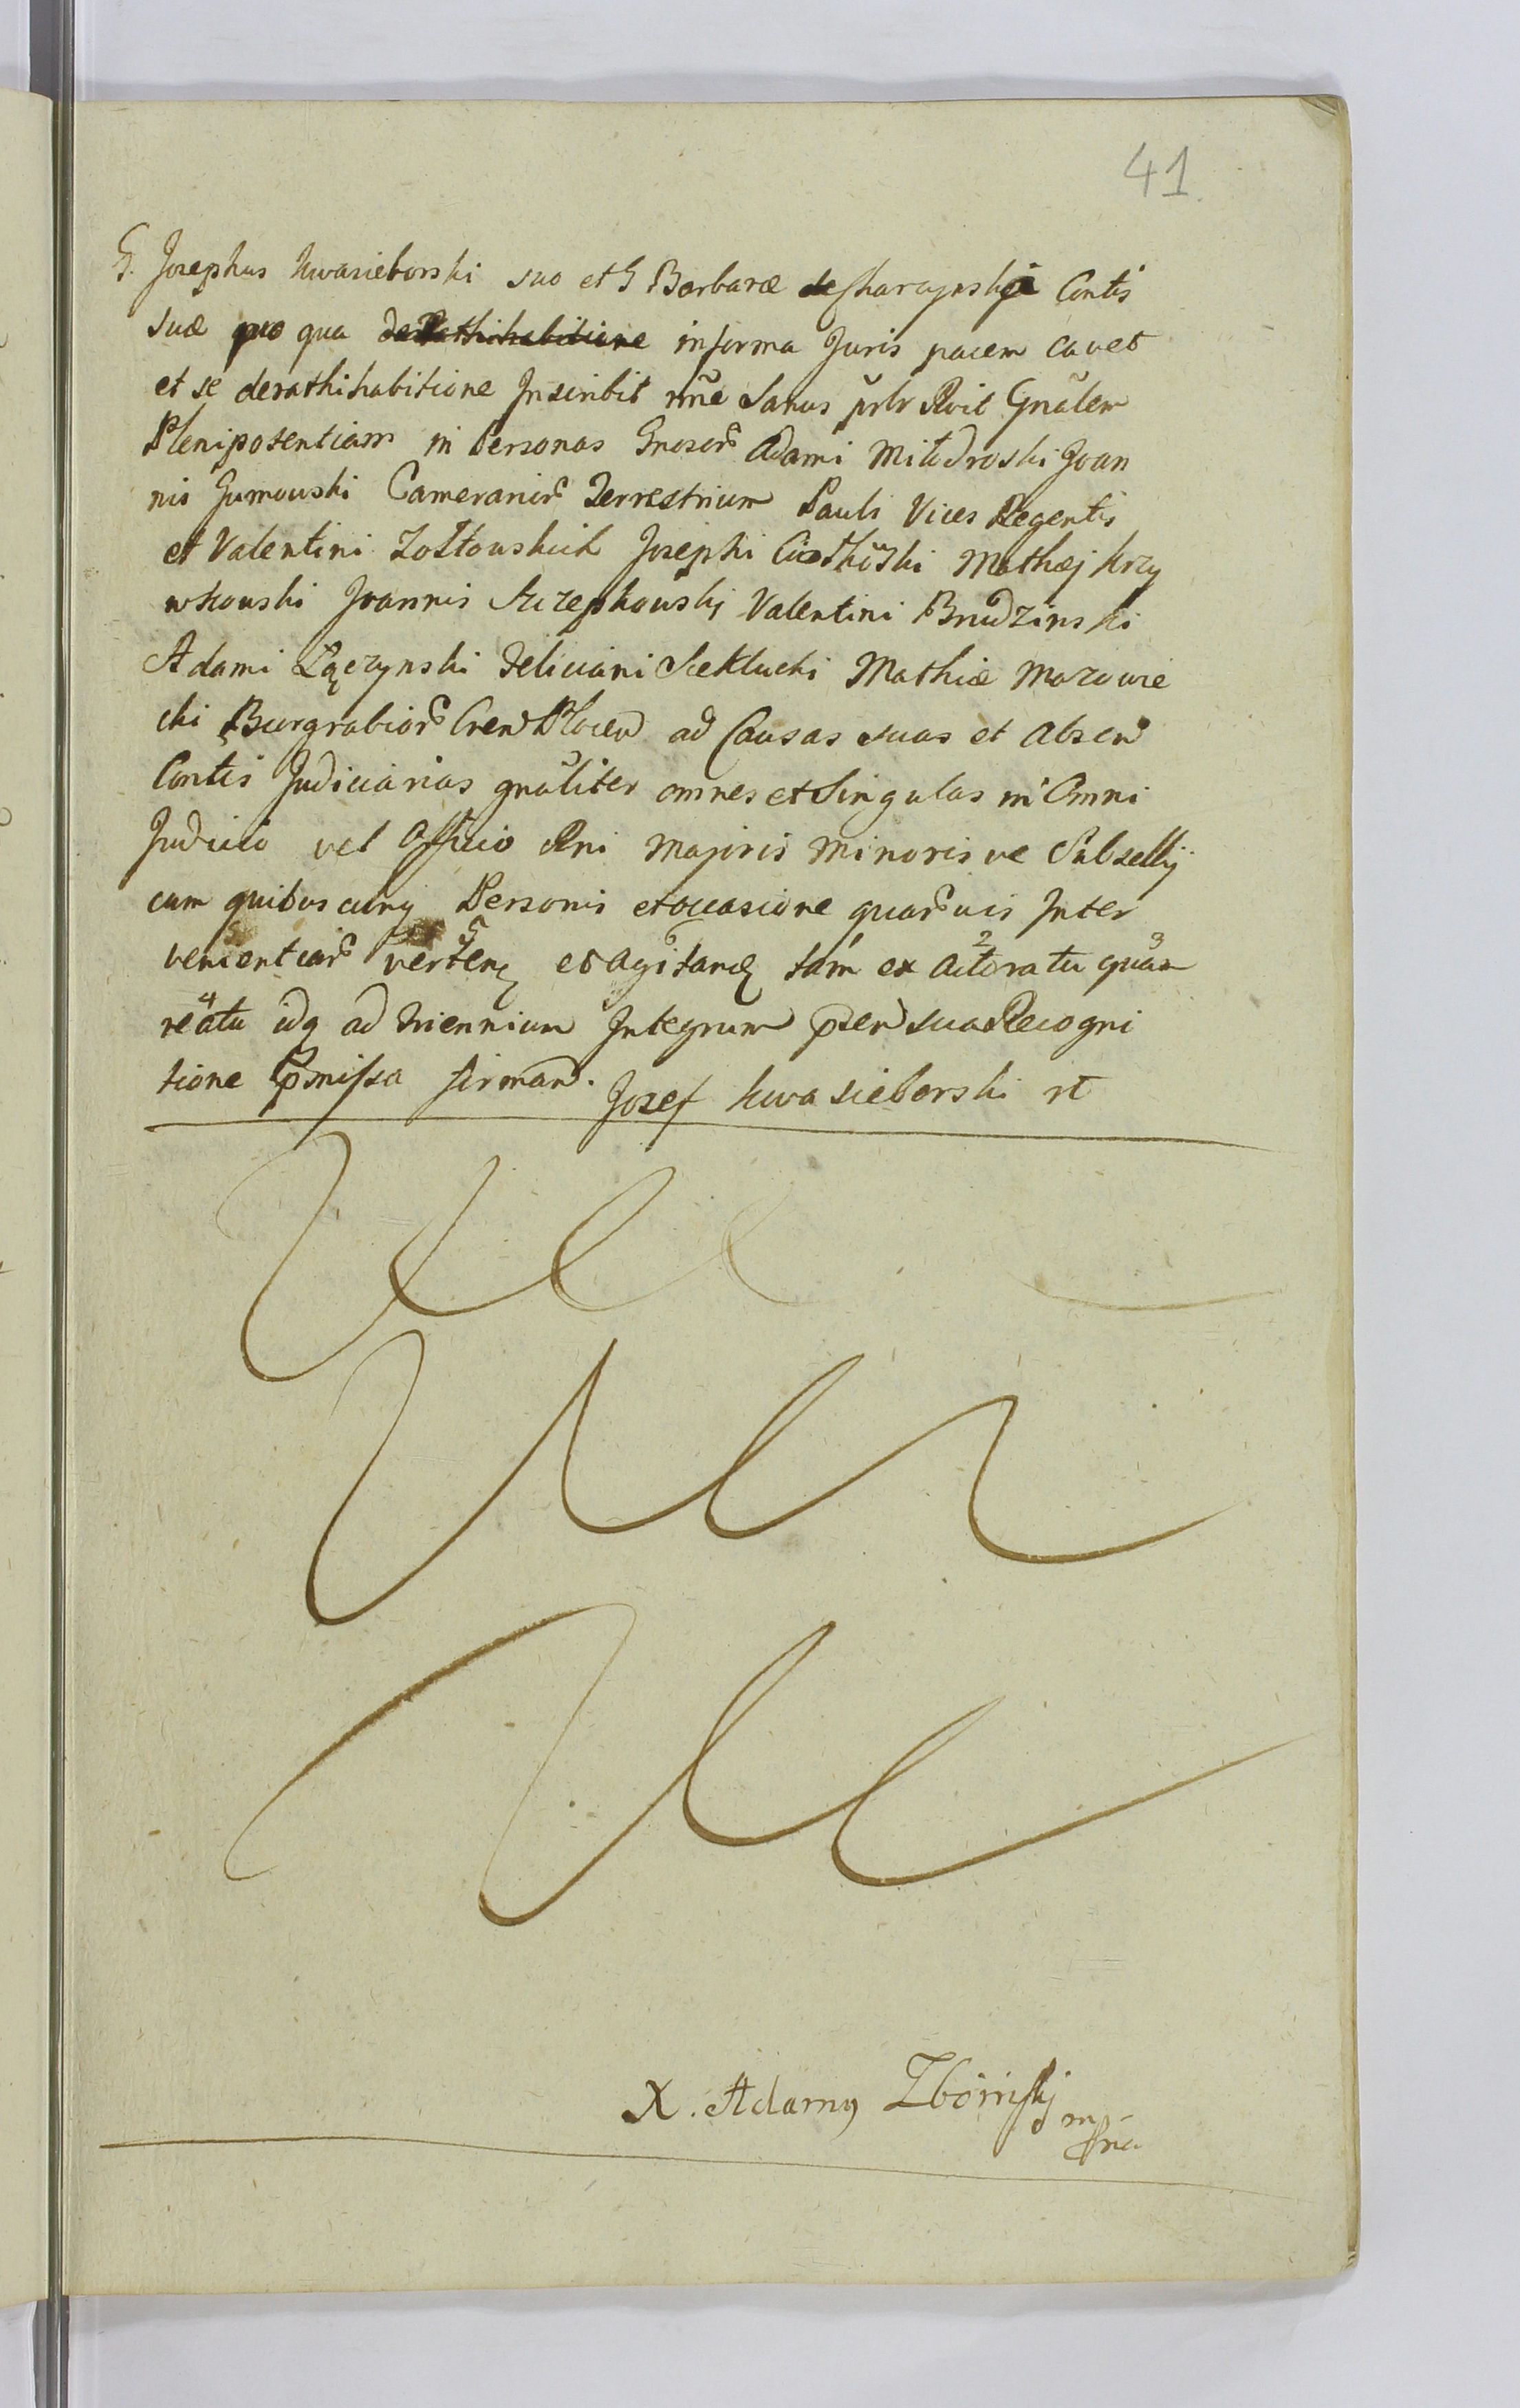 41
G. Josephus Kwasieborski suo et G Barbaræ de Skarzynski Contis
suæ pro qua de Rathihabitione in forma Juris pacem cavet
et se de rathihabitione Inscribit nne Sanus prbr Rcit Gnalem
Plenipotentiam in Personas Gnosor Adami Miłodroski Joan
nis Gumowski Camerarior Terrestrium Pauli Vices Regentis
et Valentini Zołtowskich Josephi Mathæj Krzy
wkowski Joannis Szczepkowskj Valentini Brudzinski
Adami Łączynski Feliciani Sekłucki Mathiæ Mazowie
cki Burgrabior Cren Plocen ad Causas suas et Absen
Contis Judiciarias gnaliter omnes et Singulas in Omni
Judicio vel Officio Rni Majoris Minoris ve Subsellij
cum quibuscunq Personis et occasione quarvis Inter
venientiar verten et agitand tam ex actoratu quam
reatu idq ad triennium Integrum pnsen sua Recogni
tione pmissa firman. Jozef Kwasieborski rt
X. Adamy Zboinskj mpria